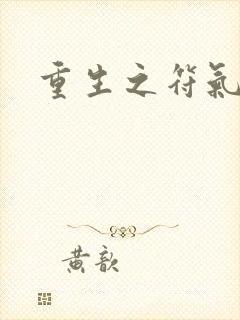 重生之符氣
黃歆